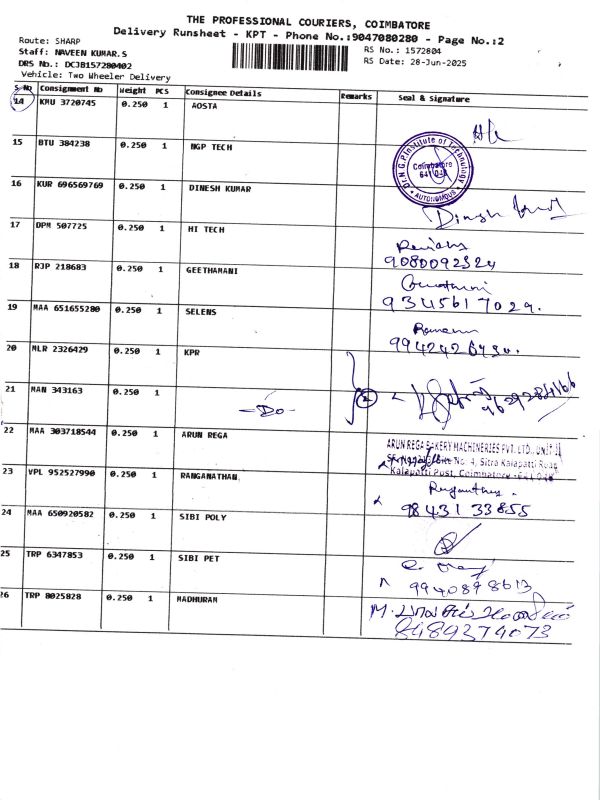 THE PROFESSIONAL COURIERS, COIMBATORE
Delivery Runsheet - KPT - Phone No.:9047080280 - Page No.:2
Route: SHARP
Staff: NAVEEN KUMAR.S
RS No.: 1572804
DRS No.: DCJB157280402
RS Date: 28-Jun-2025
Vehicle: Two Wheeler Delivery
S No Consignment No Weight PCS Consignee Details Remarks Seal & Signature
14 KMU 3720745 0.250 1 AOSTA
15 BTU 384238 0.250 1 NGP TECH
Dr. N G P Institute of Technology
Coimbatore
641 048
AUTONOMOUS
16 KUR 696569769 0.250 1 DINESH KUMAR
Dinesh
17 DPM 507725 0.250 1 HI TECH
9080092324
18 RJP 218683 0.250 1 GEETHAMANI
9345617029.
19 MAA 651655280 0.250 1 SELENS
20 MLR 2326429 0.250 1 KPR
21 MAN 343163 0.250 1 -Do-
2
22 MAA 303718544 0.250 1 ARUN REGA
ARUN REGA BAKERY MACHINERIES PVT. LTD., UNIT II
No. 4, Sitra Kalapatti Road
Kalapatti Post, Coimbatore - 641 048
23 VPL 952527990 0.250 1 RANGANATHAN
98431 33855
24 MAA 650920582 0.250 1 SIBI POLY
25 TRP 6347853 0.250 1 SIBI PET
9940898613
26 TRP 8025828 0.250 1 MADHURAM
8489274073